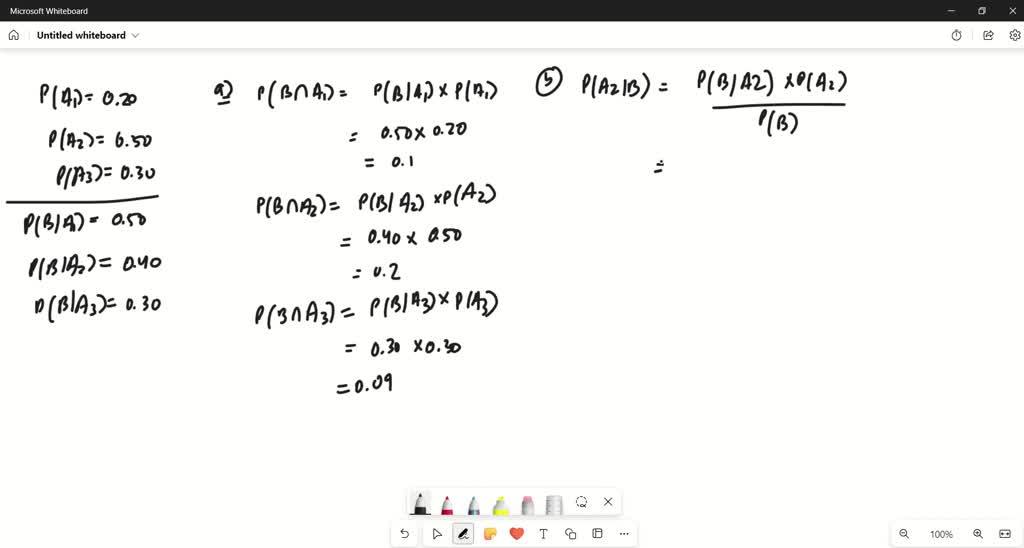 Microsoft Whiteboard
Untitled whiteboard
P(A1)= 0.20
P(A2)= 0.50
P(A3)= 0.30
P(B|A1)= 0.50
P(B|A2)= 0.40
P(B|A3)= 0.30
a) P(B∩A1)= P(B|A1)×P(A1)
= 0.50×0.20
= 0.1
P(B∩A2)= P(B|A2)×P(A2)
= 0.40×0.50
= 0.2
P(B∩A3)= P(B|A3)×P(A3)
= 0.30×0.30
= 0.09
b) P(A2|B)= P(B|A2)×P(A2)
P(B)
=
T
100%